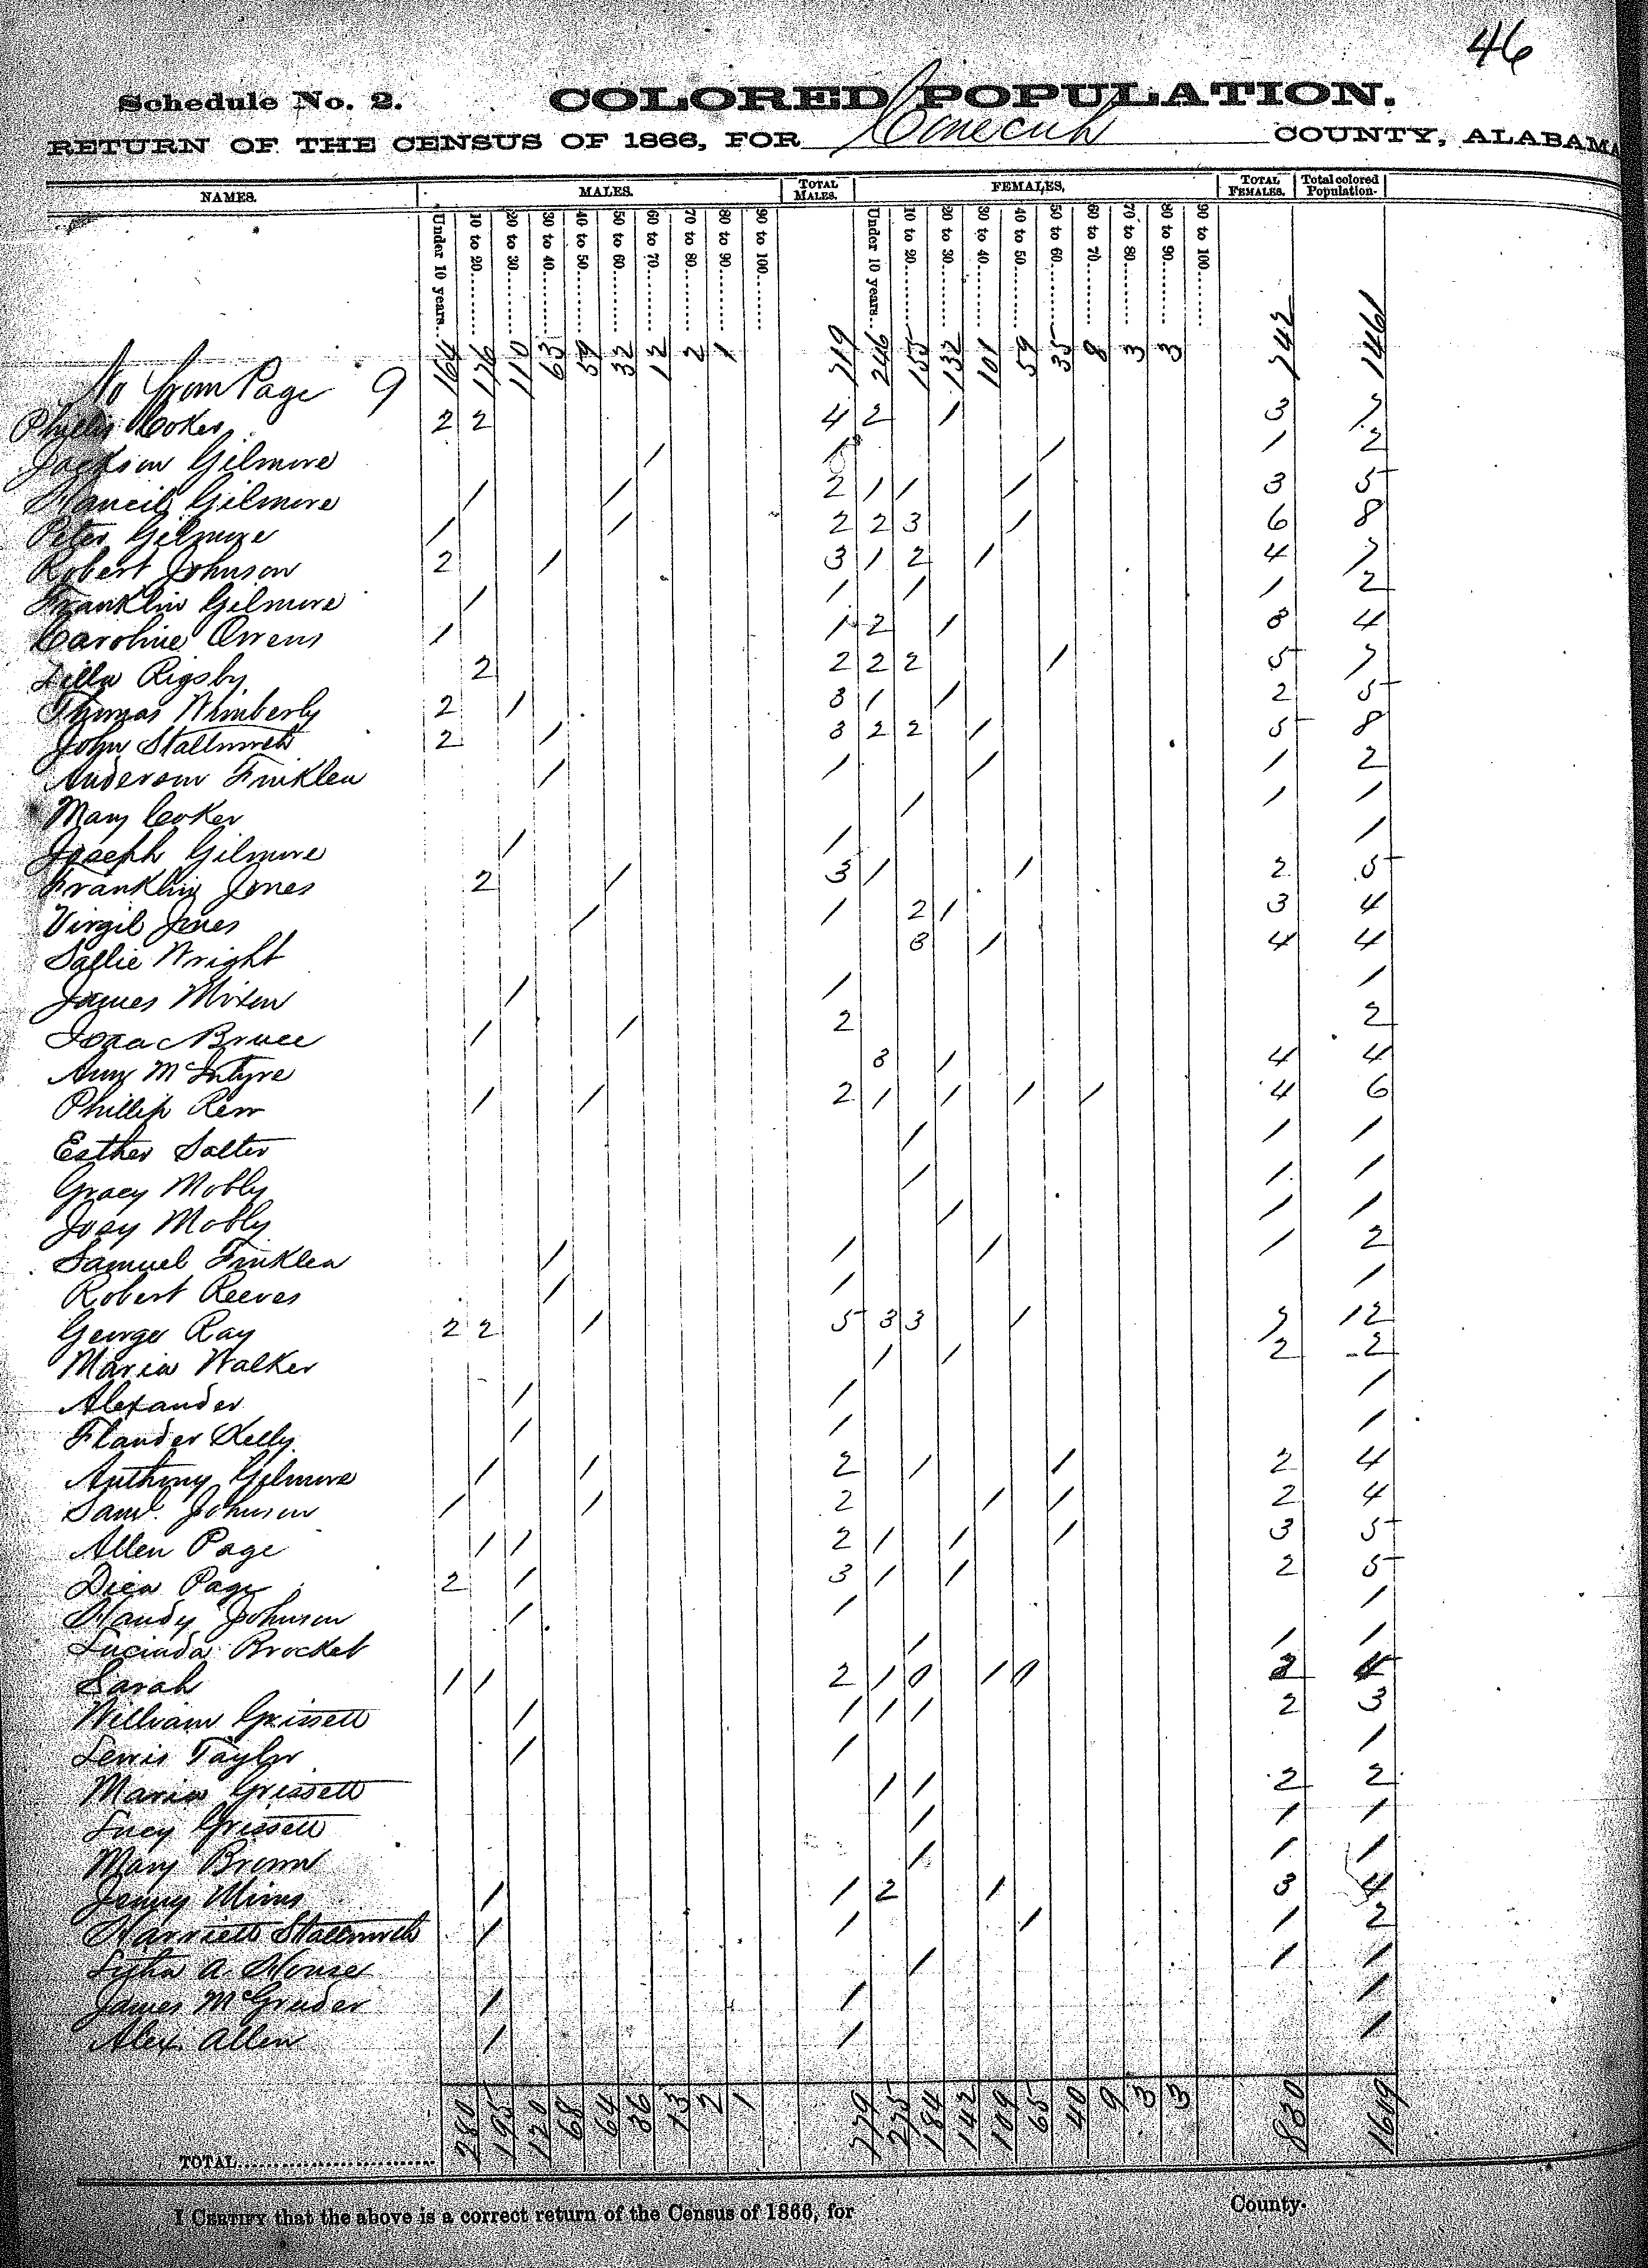 46
Schedule No. 2. COLORED POPULATION.
RETURN OF THE CENSUS OF 1866, FOR Conecuh COUNTY, ALABAMA
NAMES. MALES. TOTAL MALES. FEMALES, TOTAL FEMALES. Total colored Population.
Under 10 years. 10 to 20 20 to 30 30 to 40 40 to 50 50 to 60 60 to 70 70 to 80 80 to 90 90 to 100 Under 10 years 10 to 20 20 to 30 30 to 40 40 to 50 50 to 60 60 to 70 70 to 80 80 to 90 90 to 100
No from Page 9 176 110 63 59 32 12 2 1 719 246 155 132 101 59 35 8 3 3 742 1461
Phillis Coker 2 2 4 2 1 3 7
Jackson Gilmore 1 1 1 1 2
Gilmore 1 1 2 1 1 1 3 5
Peter Gilmore 1 1 2 2 3 1 6 8
Robert Johnson 2 1 3 1 2 1 4 7
Franklin Gilmore 1 1 1 1 2
Caroline Owens 1 1 2 1 3 4
Zilla Rigsby 2 2 2 2 1 5 7
Thomas Wimberly 2 1 3 1 1 2 5
John Stallworth 2 1 3 2 2 1 5 8
Anderson Finklea 1 1 1 1 2
Mary Coker 1 1 1
Joseph Gilmore 1 1 1
Franklin Jones 2 1 3 1 1 2 5
Virgil Jones 1 1 2 1 3 4
Sallie Wright 3 1 4 4
James Mixon 1 1 1
Isaac Bruce 1 1 2 2
Ann McIntyre 3 1 4 4
Phillip 1 1 2 1 1 1 1 4 6
Esther Salter 1 1 1
Gracy Mobly 1 1 1
Joey Mobly 1 1 1
Samuel Finklea 1 1 1 1 2
Robert Reeves 1 1 1
George Ray 2 2 1 5 3 3 1 7 12
Maria Walker 1 1 2 2
Alexander 1 1 1
Flander Kelly 1 1 1
Anthony Gilmore 1 1 2 1 1 2 4
Saml. Johnson 1 1 2 1 1 2 4
Allen Page 1 1 2 1 1 1 3 5
Page 2 1 3 1 1 2 5
Handy Johnson 1 1 1
Lucinda Brocket 1 1 1
Sarah 1 1 2 1 0 1 0 2 4
William Grissett 1 1 1 1 2 3
Lewis Taylor 1 1 1
Maria Grissett 1 1 2 2
Lucy Grissett 1 1 1
Mary Brown 1 1 1
Jenny Mims 1 1 2 1 3 4
Harriett Stallworth 1 1 1 1 2
A. House 1 1 1
James McGruder 1 1 1
Alex. Allen 1 1 1
TOTAL 280 195 120 68 64 36 13 2 1 779 275 184 142 109 65 40 9 3 3 830 1609
I CERTIFY that the above is a correct return of the Census of 1866, for County.